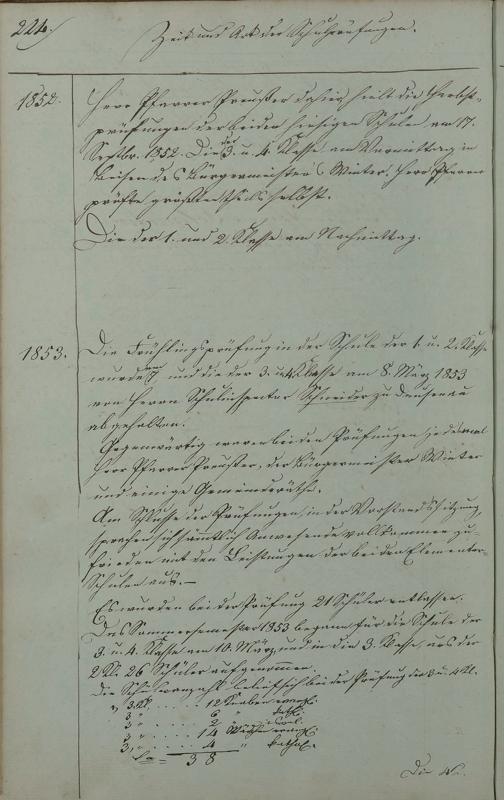 224.
Zeit und Art der Schulprüfungen.
1852.
Herr Pfarrer Preußer dahier hielt die Herbst-
prüfungen der beiden hiesigen Schulen am 17.
Septbr. 1852. Die der 3. u. 4. Klasse am Vormittag in
Beisein des Bürgermeisters Winter. Herr Pfarrer
prüfte größtentheils selbst.
Die der 1. und 2. Klasse am Nachmittag.
1853.
Die Frühlingsprüfung in der Schule der 1. u. 2. Klasse
wurde am 7. und die der 3. u. 4. Klasse am 8. März 1853
von Herrn Schulinspector Schneider zu Dausenau
abgehalten.
Gegenwärtig waren bei den Prüfungen jedesmal
Herr Pfarrer Preußer, der Bürgermeister Winter
und einige Gemeinderäthe.
Am Schlusse der Prüfungen, in der Vorstandssitzung,
sprachen sich sämtlich Anwesende vollkommen zu-
frieden mit den Leistungen der beiden Elementar-
Schulen aus. —
Es wurden bei der Prüfung 21 Schüler entlassen.
Das Sommersemester 1853 begann für die Schule der
3. u. 4. Klasse am 10. März, und in die 3. Klasse, aus der
2. Kl. 26 Schüler aufgenommen.
Die Schüleranzahl belief sich bei der Prüfung der 3. u. 4. Kl.
3. Kl. . . . . 12 Knaben evangl.
3 " . . . . . 6 " kathl.
3 " . . . . . 2 "
3 " . . . . . 14 Mädchen evangl.
3 " . . . . . 4 " kathol.
Sa = 38
Die 4.